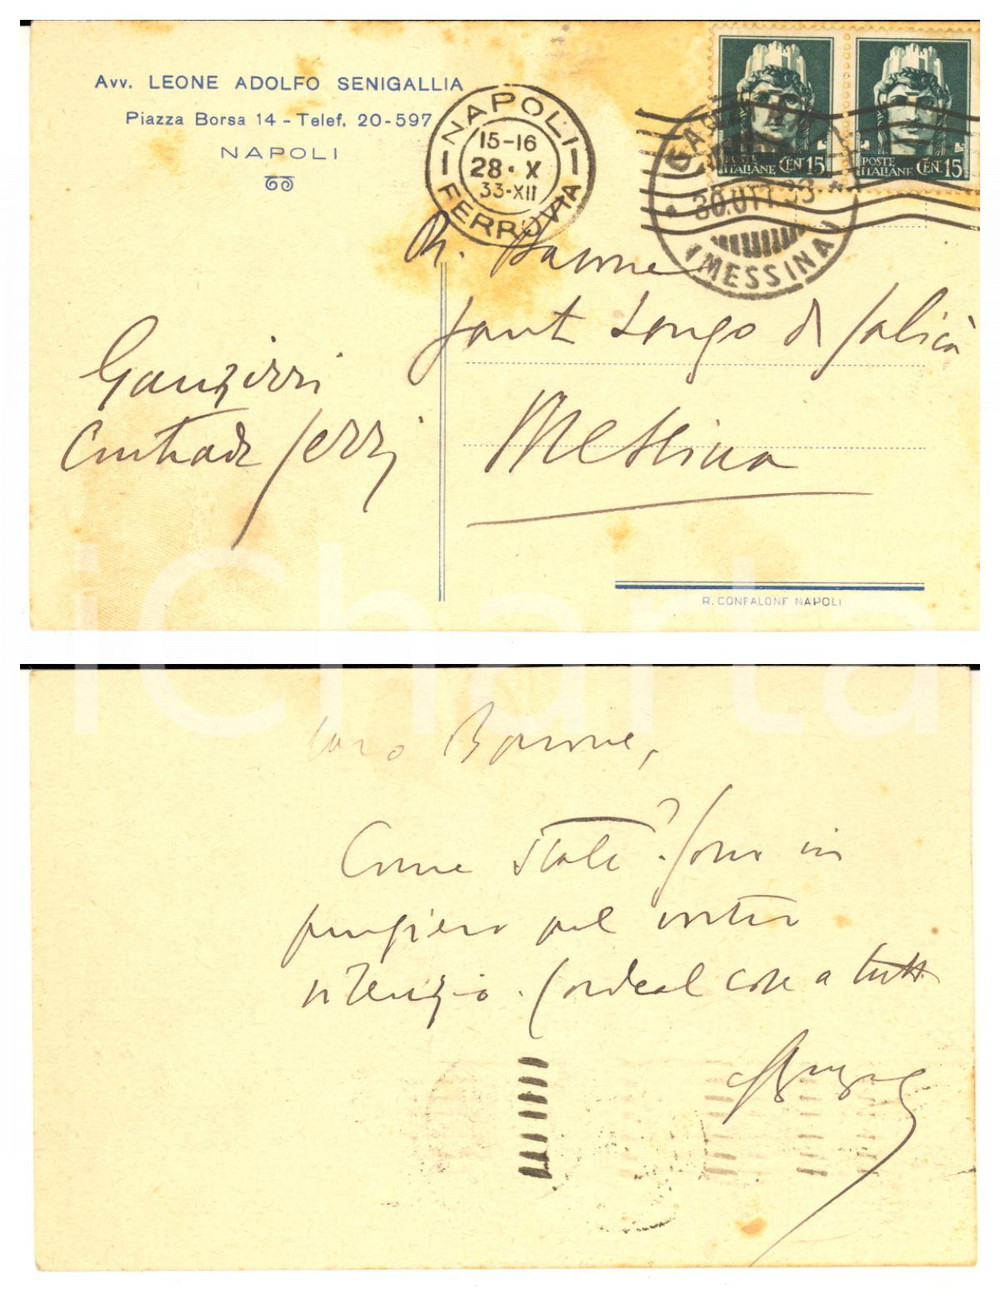 Avv. LEONE ADOLFO SENIGALLIA
Piazza Borsa 14 - Telef. 20-597
NAPOLI
NAPOLI
15-16
28 · X
33-XII
FERROVIA
POSTE ITALIANE CEN. 15
POSTE ITALIANE CEN. 15
30.OTT.33
(MESSINA)
Barone
Longo di
Messina
Ganzirri
Contrada Serri
R. CONFALONE NAPOLI
iCharta
Caro Barone,
Come state? Sono in
pensiero pel vostro
silenzio. Cordeal cose a tutti